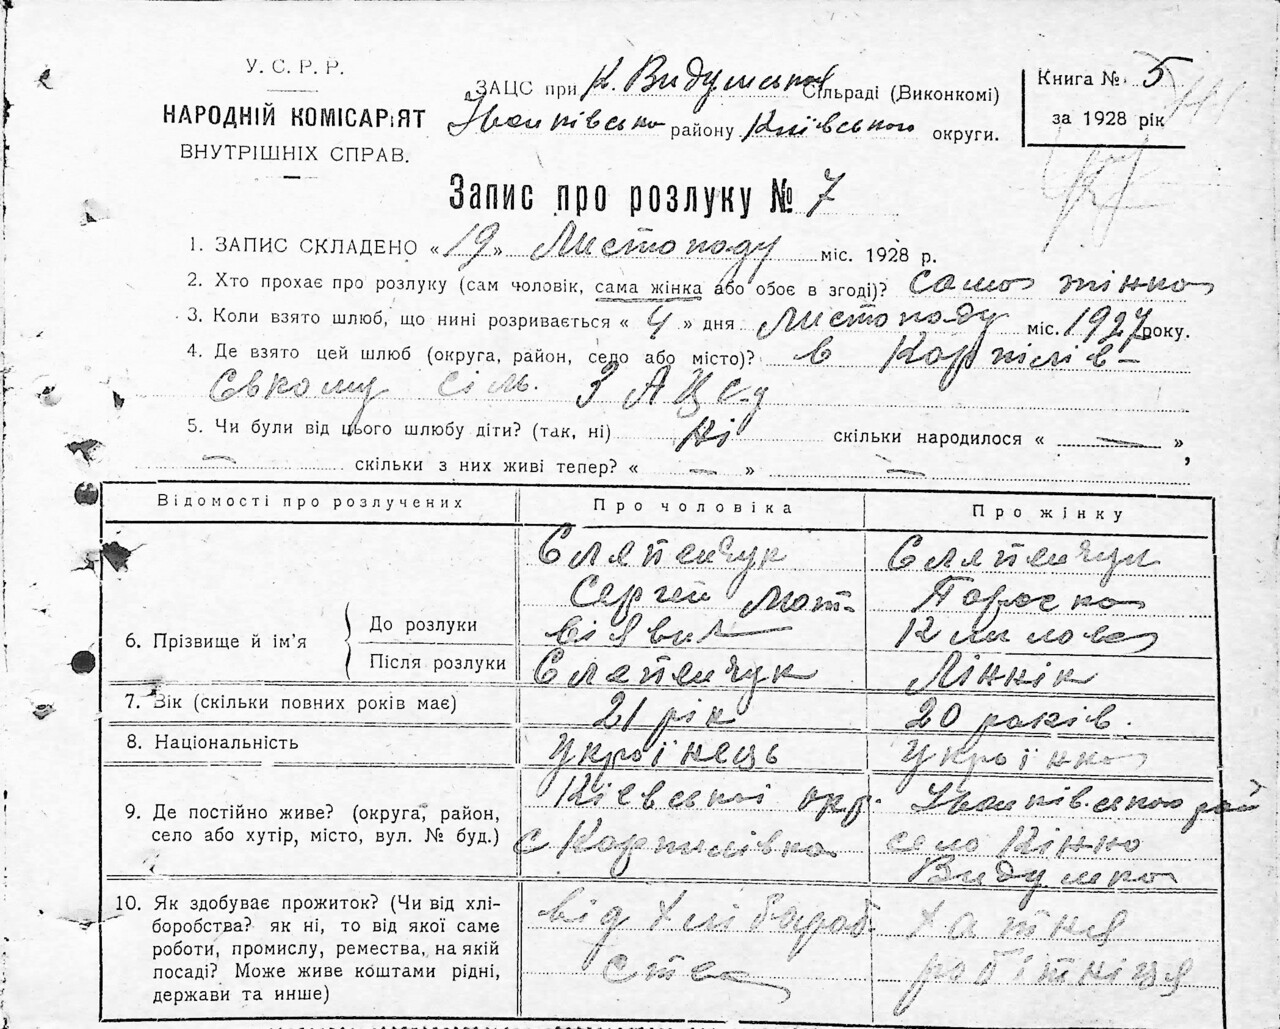 У. С. Р. Р.
НАРОДНІЙ КОМІСАРІЯТ
ВНУТРІШНІХ СПРАВ.
ЗАЦС при К. Видумській Сільраді (Виконкомі)
Іванківсько району Київського округи.
Книга № 5
за 1928 рік
Запис про розлуку № 7
1. ЗАПИС СКЛАДЕНО «19» Листопаду міс. 1928 р.
2. Хто прохає про розлуку (сам чоловік, сама жінка або обоє в згоді)? сама жінка
3. Коли взято шлюб, що нині розривається « 4 » дня Листопаду міс. 1927 року.
4. Де взято цей шлюб (округа, район, село або місто)? в Карпилів-
ському сіль. ЗАЦСу
5. Чи були від цього шлюбу діти? (так, ні) ні скільки народилося « — »
— скільки з них живі тепер? « — » —
Відомості про розлучених
Про чоловіка
Про жінку
6. Прізвище й ім'я
До розлуки
Після розлуки
Слепенчук
Сергей Мат-
вієвич
Слепенчук
Слепенчук
Параска
Климова
Ліннік
7. Вік (скільки повних років має) 21 рік 20 років.
8. Національність українець українка
9. Де постійно живе? (округа, район,
село або хутір, місто, вул. № буд.)
Київської окр.
с Карпилівка
Іванківського рай
село Кінно
Видумка
10. Як здобуває прожиток? (Чи від хлі-
боробства? як ні, то від якої саме
роботи, промислу, ремества, на якій
посаді? Може живе коштами рідні,
держави та инше)
від хлібараб
ства
хатня
робітниця